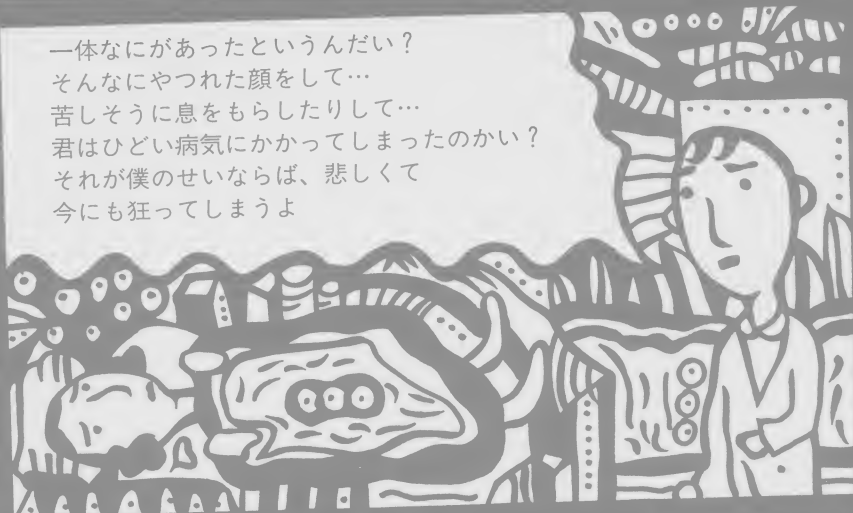 一体なにがあったというんだい？
そんなにやつれた顔をして…
苦しそうに息をもらしたりして…
君はひどい病気にかかってしまったのかい？
それが僕のせいならば、悲しくて
今にも狂ってしまうよ